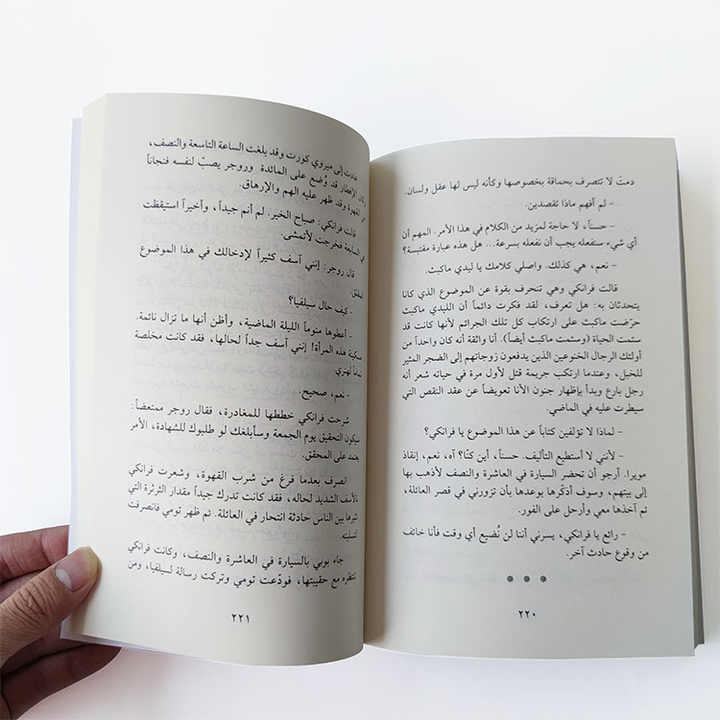 دمتَ لا تتصرف بحماقة بخصوصها وكأنه ليس لها عقل ولسان.
- لم أفهم ماذا تقصدين.
- حسناً، لا حاجة لمزيد من الكلام في هذا الأمر. المهم أن
أي شيء سنفعله يجب أن نفعله بسرعة... هل هذه عبارة مقتبسة؟
- نعم، هي كذلك. واصلي كلامك يا ليدي ماكبث.
قالت فرانكي وهي تنحرف بقوة عن الموضوع الذي كانا
يتحدثان به: هل تعرف، لقد فكرت دائماً أن الليدي ماكبث
حرّضت ماكبث على ارتكاب كل تلك الجرائم لأنها كانت قد
سئمت الحياة (وسئمت ماكبث أيضاً). أنا واثقة أنه كان واحداً من
أولئك الرجال الخنوعين الذين يدفعون زوجاتهم إلى الضجر المثير
للخبل، وعندما ارتكب جريمة قتل لأول مرة في حياته شعر أنه
رجل بارع وبدأ بإظهار جنون الأنا تعويضاً عن عقد النقص التي
سيطرت عليه في الماضي.
- لماذا لا تؤلفين كتاباً عن هذا الموضوع يا فرانكي؟
- لأنني لا أستطيع التأليف. حسناً، أين كنّا؟ آه، نعم، إنقاذ
مويرا. أرجو أن تحضر السيارة في العاشرة والنصف لأذهب بها
إلى بيتهم، وسوف أذكّرها بوعدها بأن تزورني في قصر العائلة،
ثم آخذها معي وأرحل على الفور.
- رائع يا فرانكي، يسرني أننا لن نُضيع أي وقت فأنا خائف
من وقوع حادث آخر.
٢٢٠
عادت إلى ميروي كورت وقد بلغت الساعة التاسعة والنصف،
وكان الإفطار قد وُضع على المائدة وروجر يصبّ لنفسه فنجاناً
القهوة وقد ظهر عليه الهم والإرهاق.
قالت فرانكي: صباح الخير. لم أنم جيداً، وأخيراً استيقظت
في السابعة فخرجت لأتمشى.
قال روجر: إنني آسف كثيراً لإدخالك في هذا الموضوع
المقلق.
- كيف حال سيلفيا؟
- أعطوها منوماً الليلة الماضية، وأظن أنها ما تزال نائمة.
مسكينة هذه المرأة! إنني آسف جداً لحالها، فقد كانت مخلصة
تماماً لهنري
- نعم، صحيح.
شرحت فرانكي خططها للمغادرة، فقال روجر ممتعضاً:
سيكون التحقيق يوم الجمعة وسأبلغك لو طلبوك للشهادة، الأمر
يعتمد على المحقق.
انصرف بعدما فرغ من شرب القهوة، وشعرت فرانكي
بالأسف الشديد لحاله، فقد كانت تدرك جيداً مقدار الثرثرة التي
تثيرها بين الناس حادثة انتحار في العائلة. ثم ظهر تومي فانصرفت
لتسليته.
جاء بوبي بالسيارة في العاشرة والنصف، وكانت فرانكي
تنتظره مع حقيبتها، فودّعت تومي وتركت رسالة لسيلفيا، ومن
٢٢١